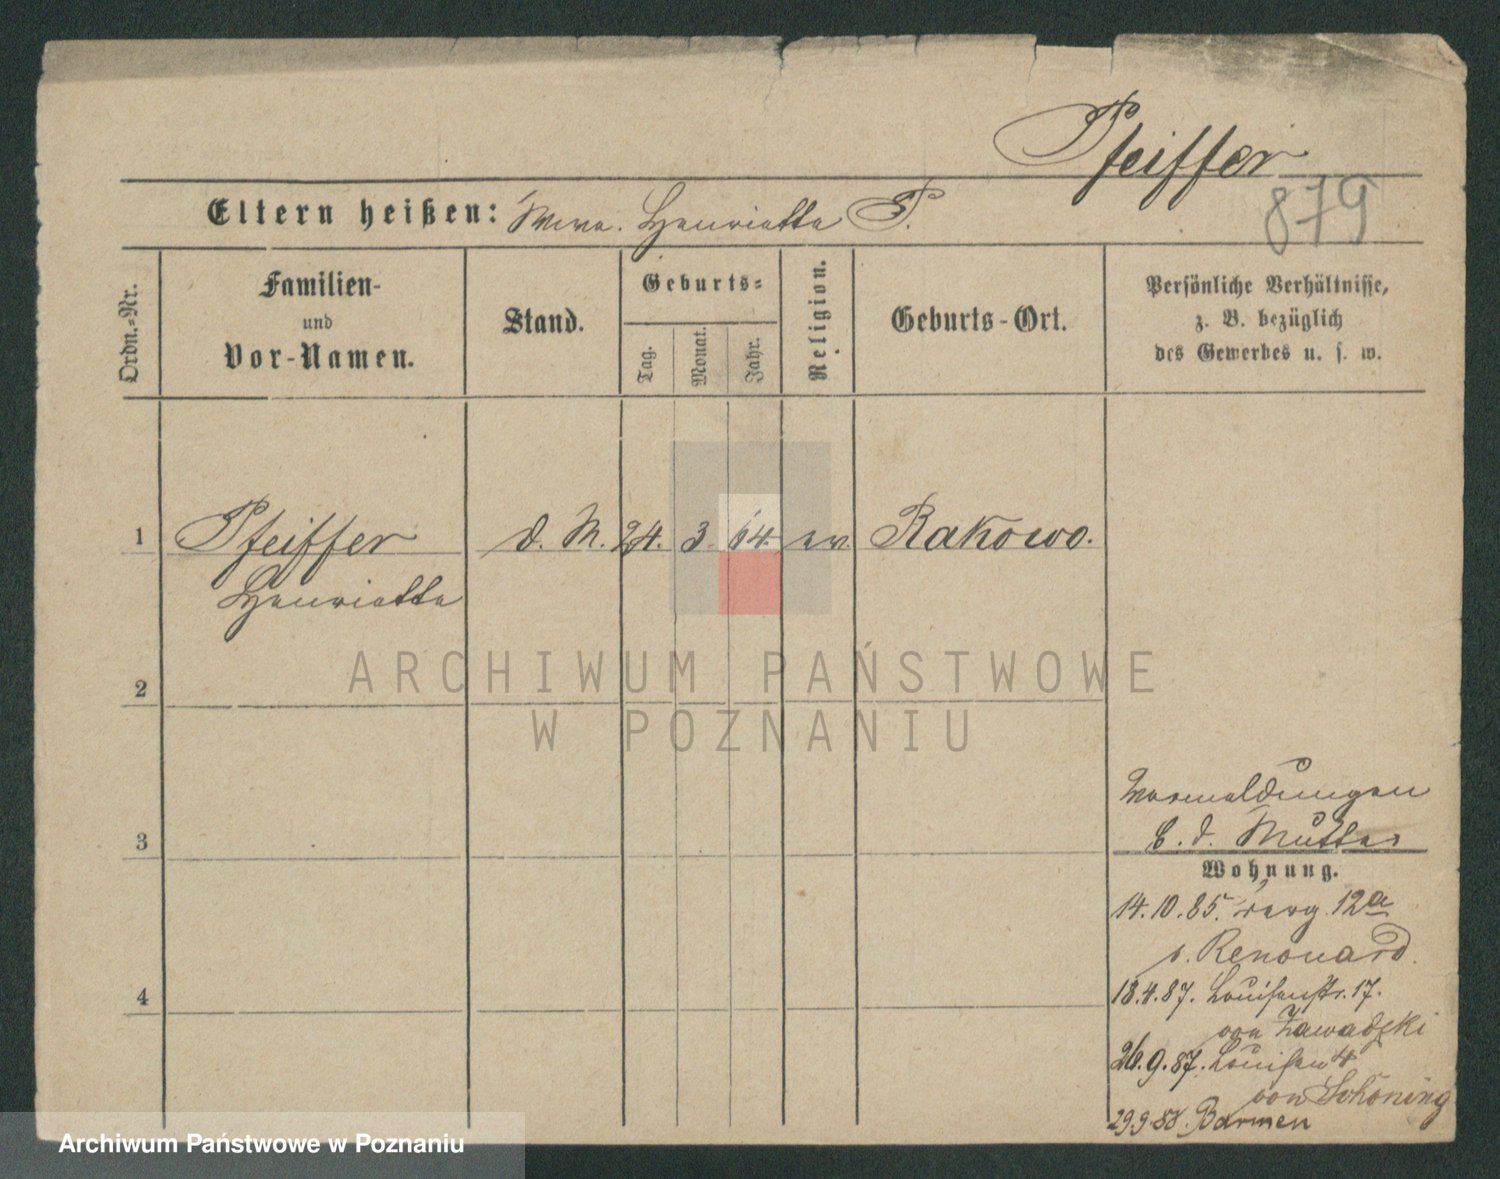 Pfeiffer
879
Eltern heißen: Wwe. Henriette P.
Ordn.-Nr.
Familien-
und
Vor-Namen.
Stand.
Geburts-
Tag.
Monat.
Jahr.
Religion.
Geburts-Ort.
Persönliche Verhältnisse,
z. B. bezüglich
des Gewerbes u. s. w.
1 Pfeiffer d. M. 24. 3. 64. ev. Rakowo.
Henriette
2
3
4
ARCHIWUM PAŃSTWOWE
W POZNANIU
Vormeldungen
b. d. Mutter
Wohnung.
14.10.85. 12a
b. Renouard.
18.4.87. Louisenstr. 17.
von Zawadzki
26.9.87. Louisen 4
von Schöning
29.9.88. Barmen
Archiwum Państwowe w Poznaniu